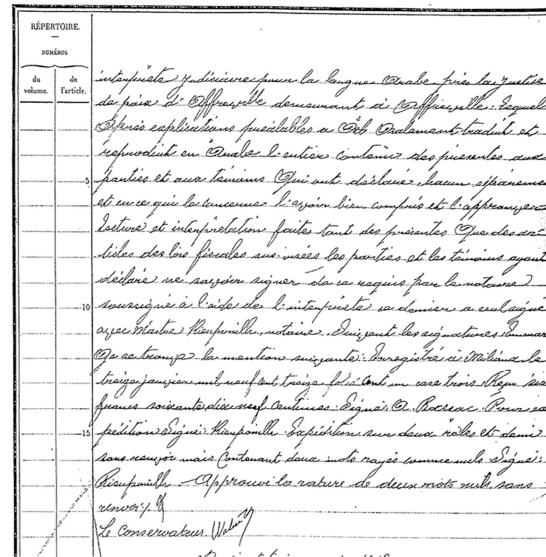 RÉPERTOIRE.
NUMÉROS
du volume.
de l'article.
interprète judiciaire pour la langue Arabe près la Justice
de paix d'Affreville demeurant à Affreville. Lequel
Après explications préalables a Oralement traduit et
reproduit en Arabe l'entier contenu des présentes aux
5
parties et aux témoins Qui ont déclaré, chacun séparément
et en ce qui le concerne l'avoir bien compris et l'approuver
lecture et interprétation faites tant des présentes Que des ar-
ticles des lois fiscales sus visées les parties et les témoins ayant
déclaré ne savoir signer de ce requis par le notaire
10
soussigné à l'aide de l'interprète ce dernier a seul signé
avec Maître notaire. Suivent les signatures
se trouve la mention suivante: Enregistré à Miliana le
treize janvier mil neuf cent treize folio Cent un case trois. Reçu six
francs soixante dix neuf centimes. Signé: Pour ex
15
pédition Signé: Expédition sur deux rôles et demi
sans renvoi mais Contenant deux mots rayés comme nuls Signé:
Approuvé la rature de deux mots nuls, sans
renvoi
Le Conservateur.